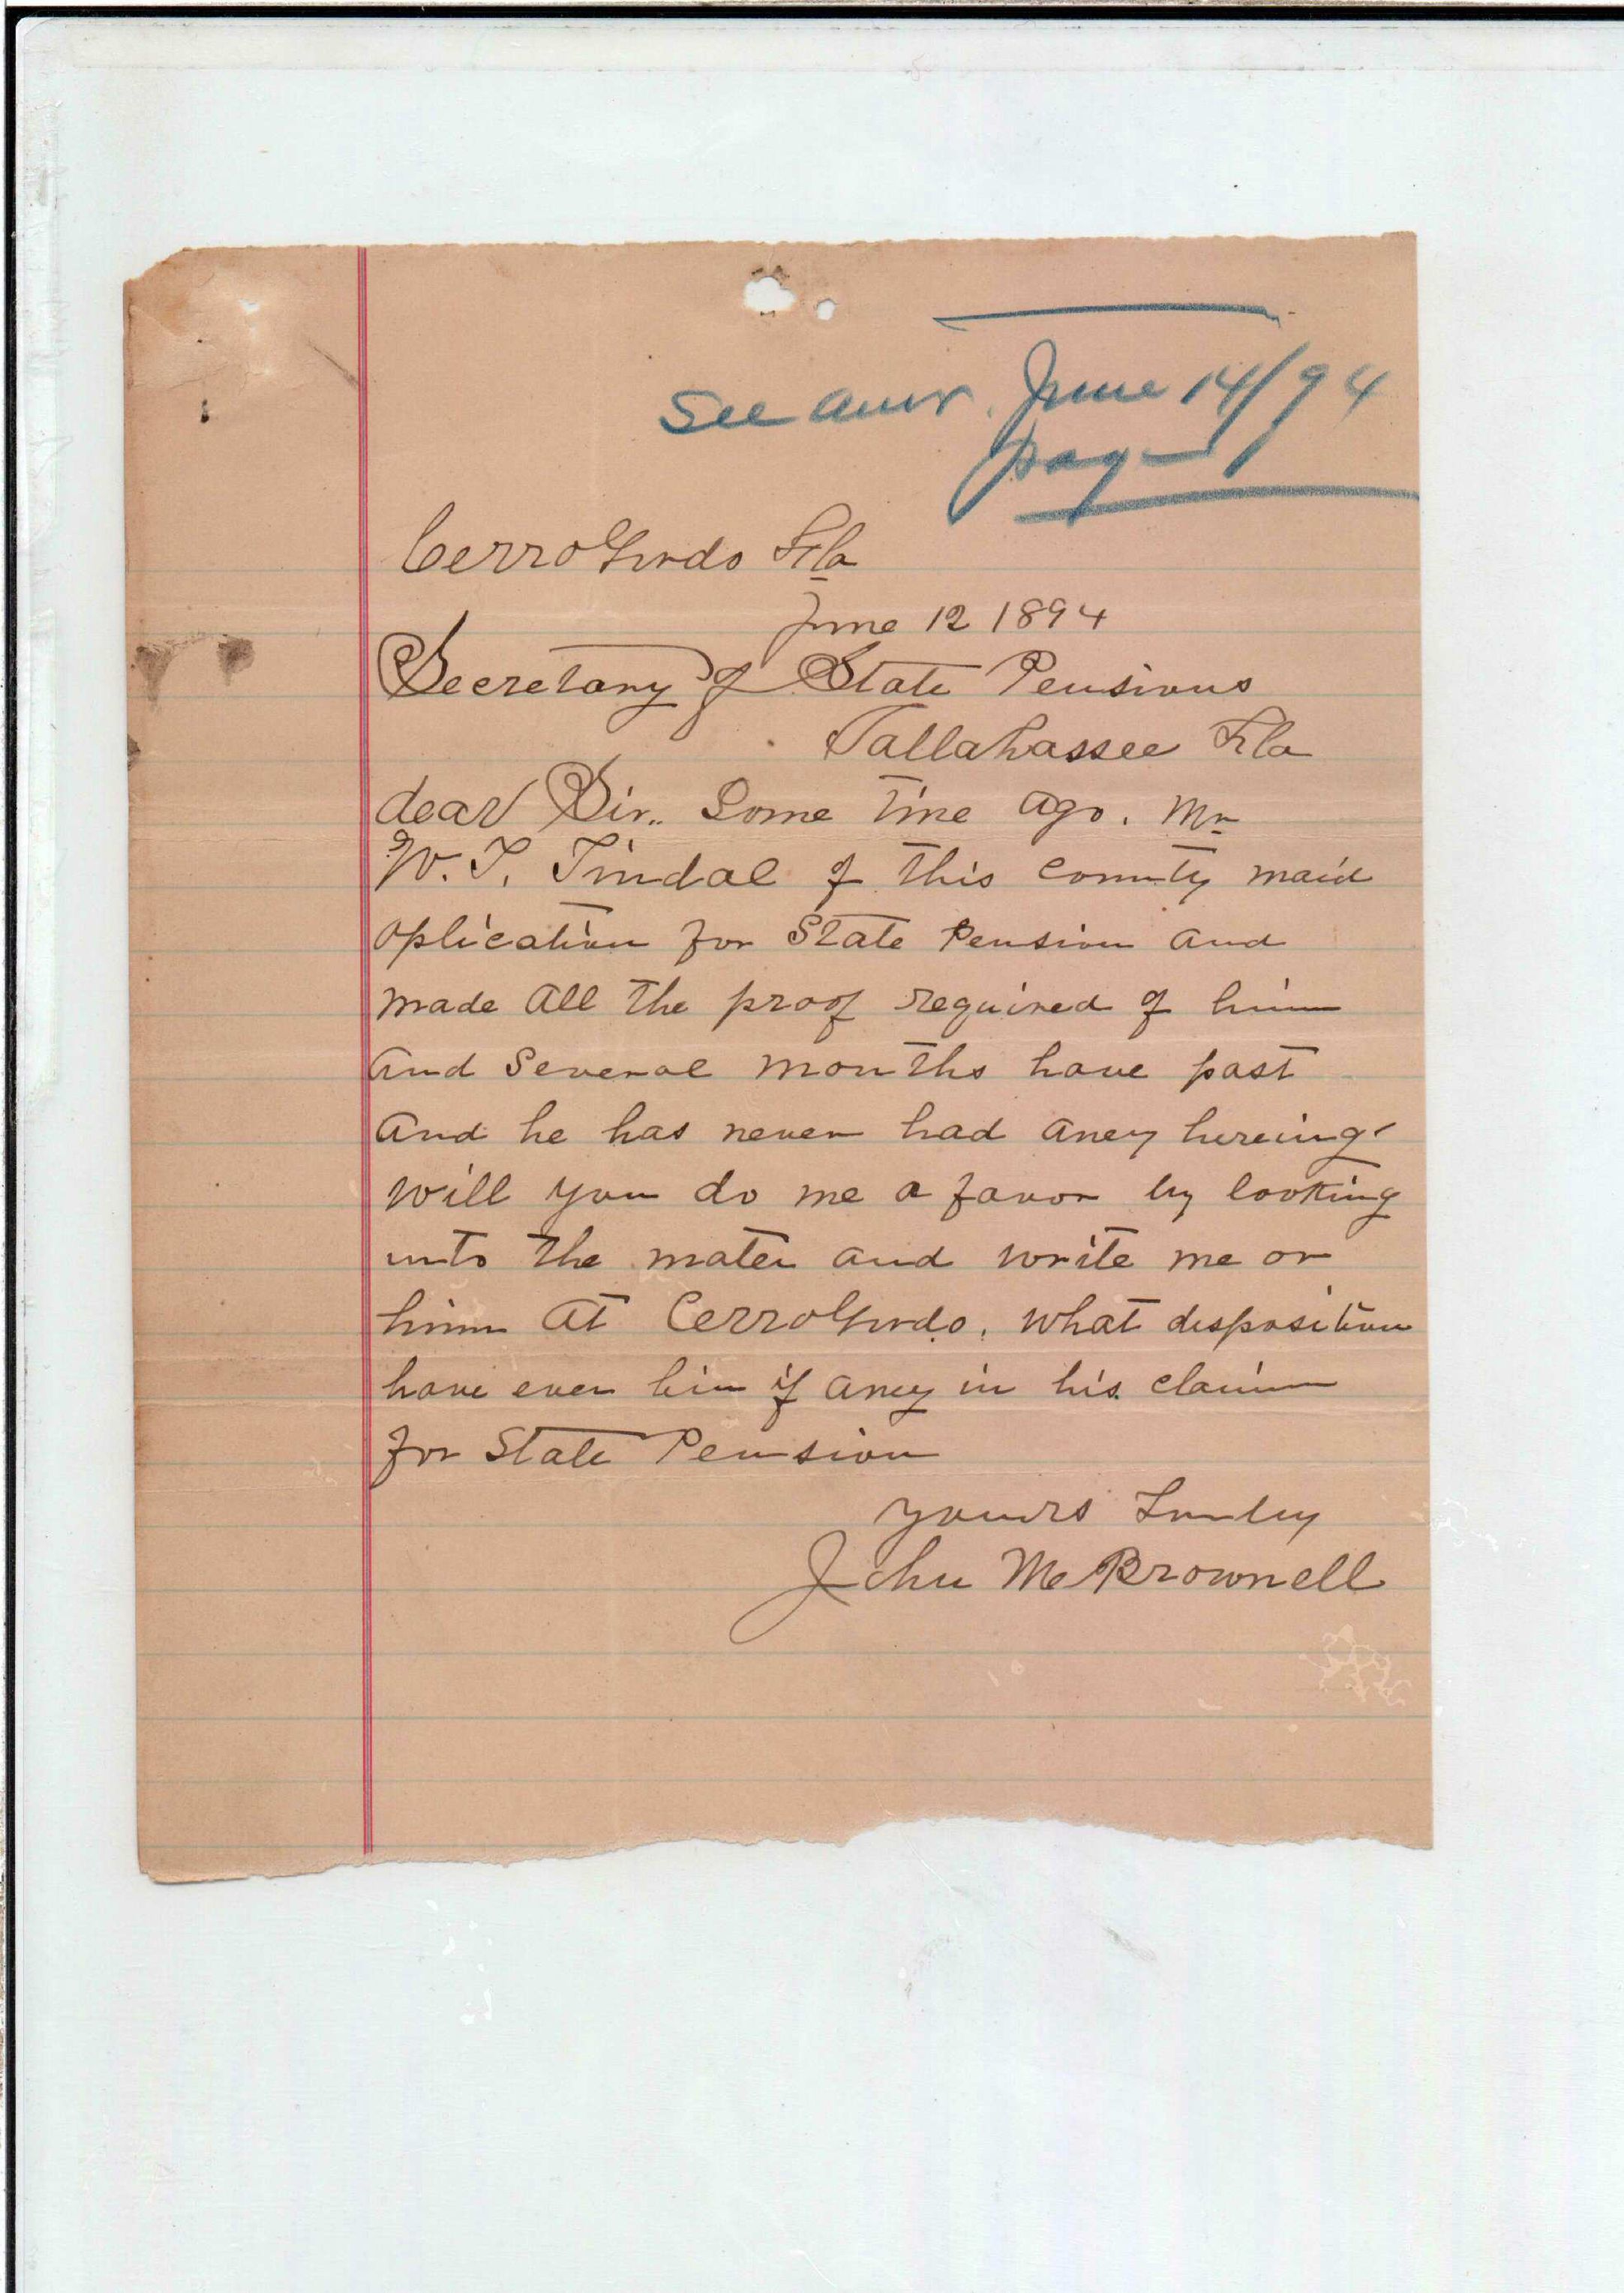 See answr. June 14/94
page 1
Cerro Gordo Fla
June 12 1894
Secretary of State Pensions
Tallahassee Fla
dear Sir. Some time ago. Mr
W. T. Tindal of this county maid
oplication for State Pension and
made all the proof required of him
and several months have past
and he has never had aney hereing
will you do me a favor by looking
into the mater and write me or
him at Cerro Gordo. what disposition
have even bin if aney in his claim
for State Pension
yours Truley
John Mc Brownell